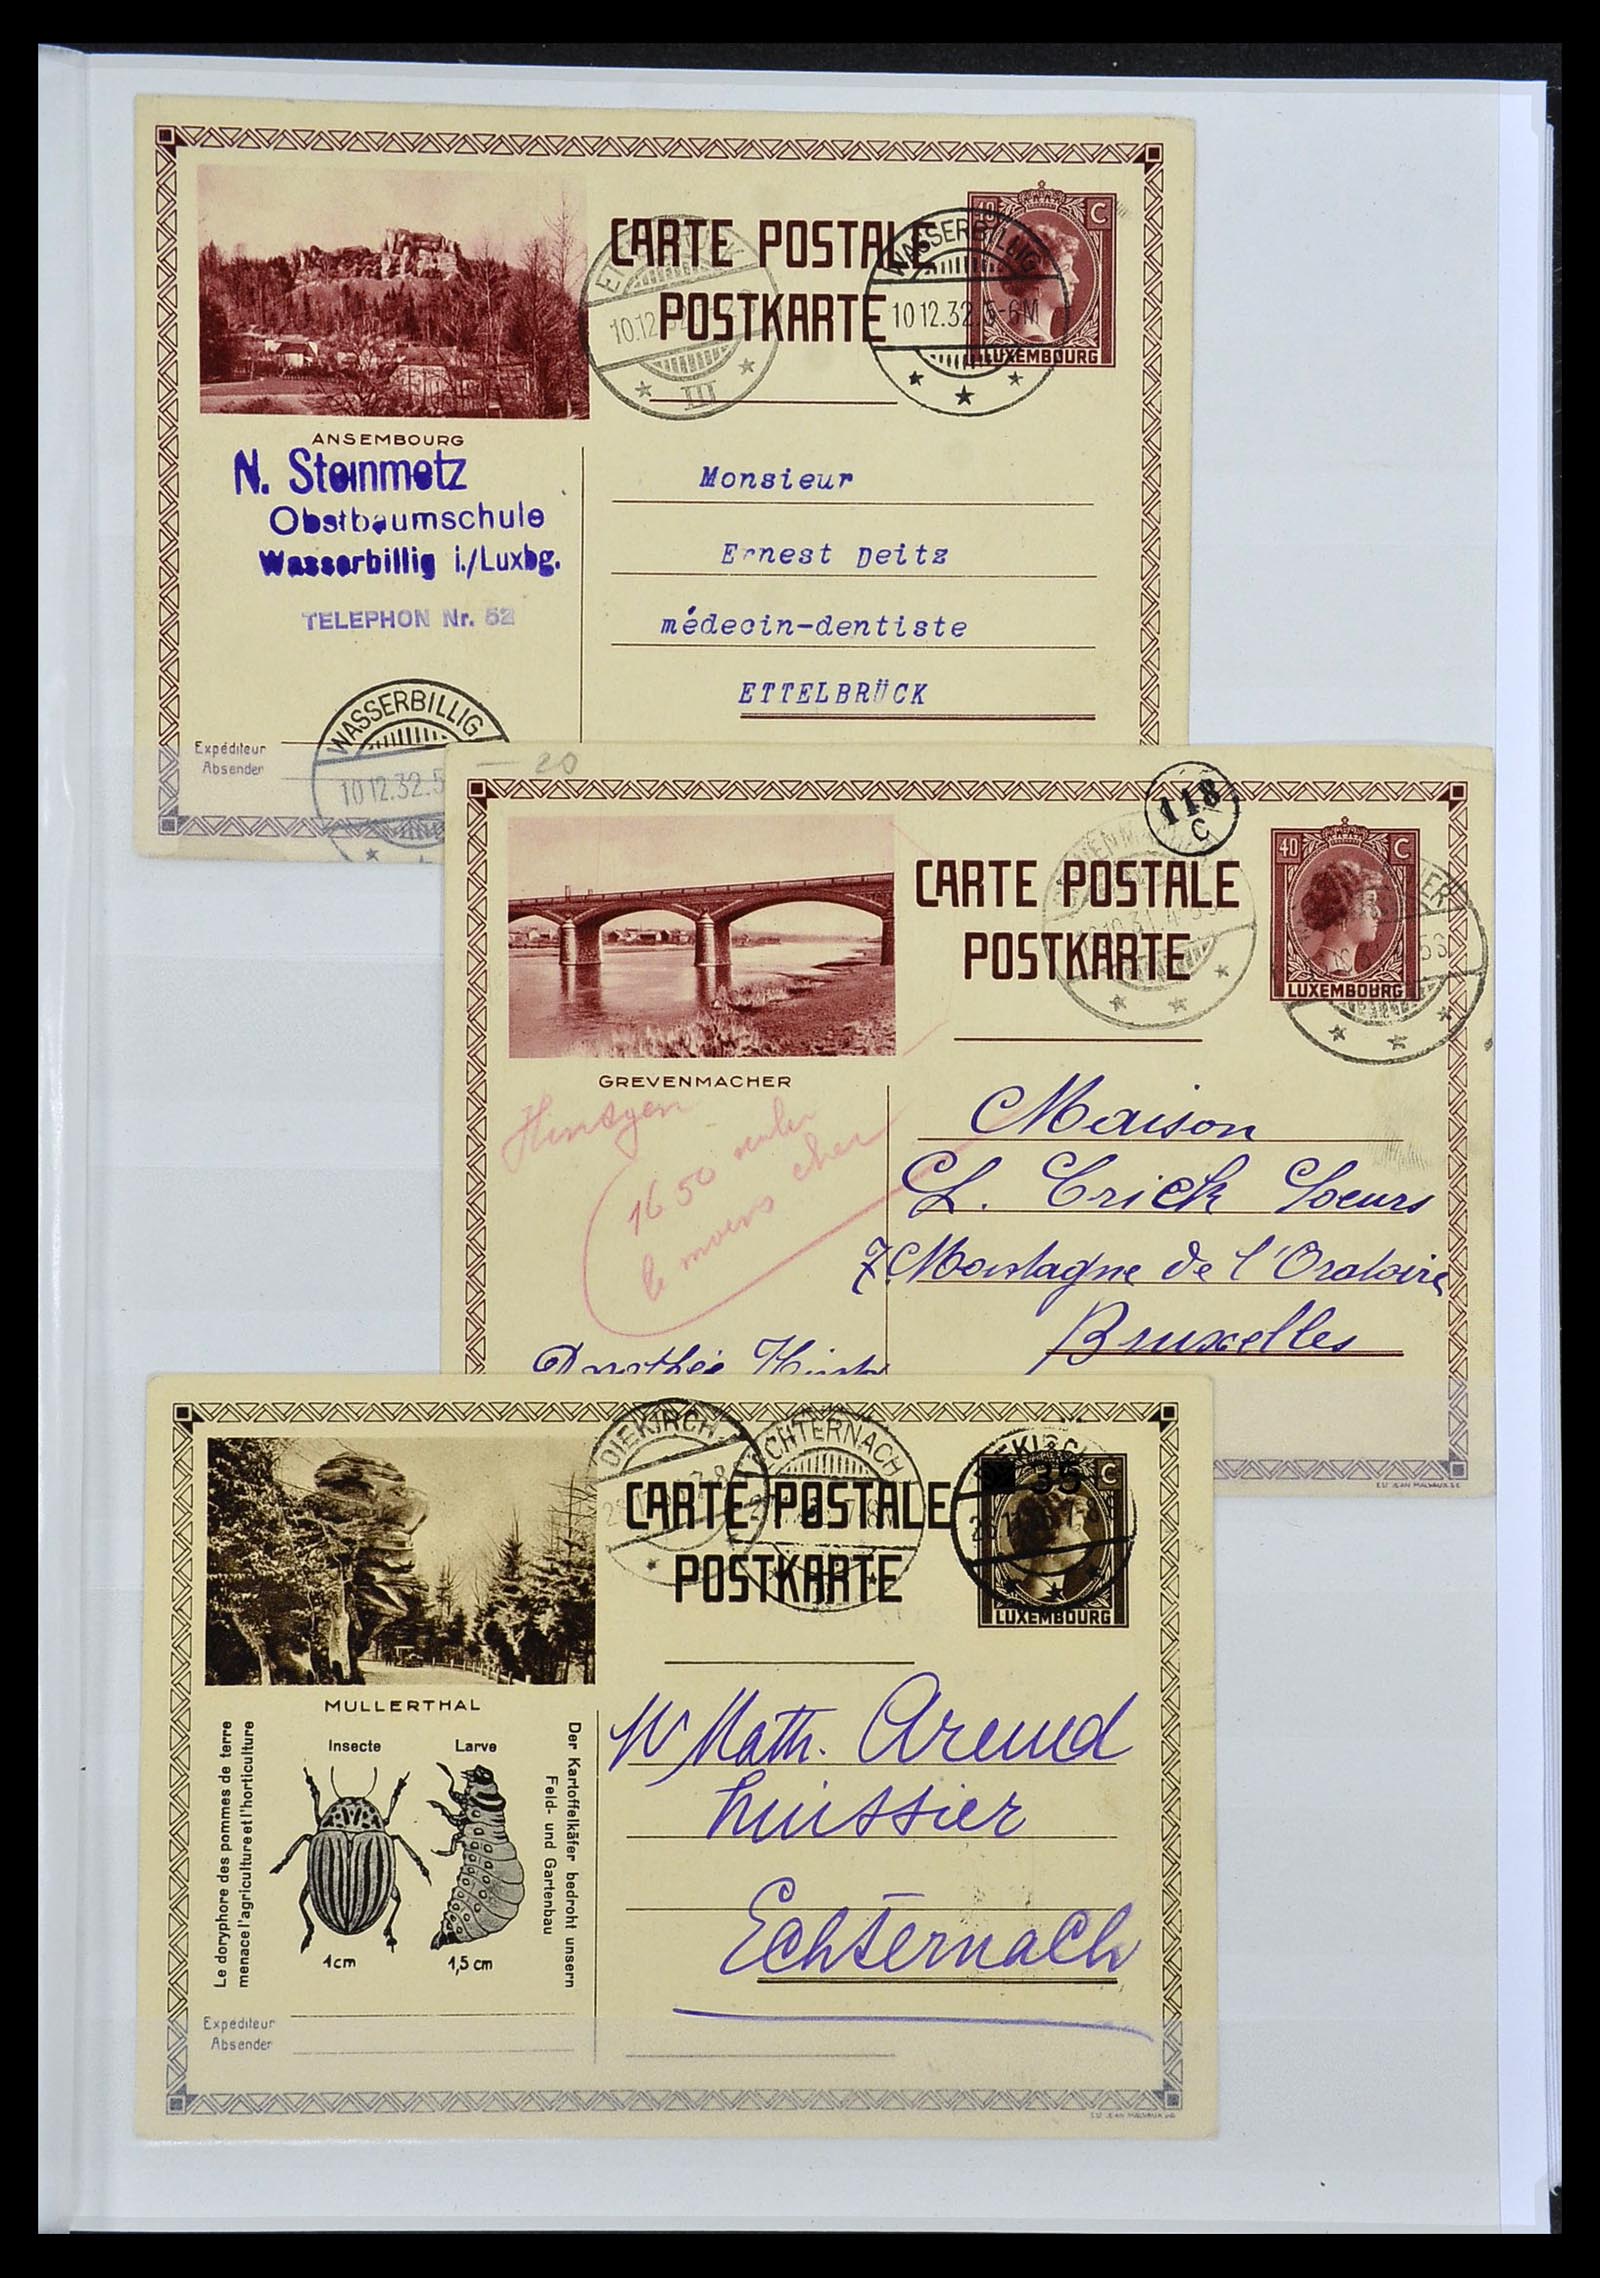 CARTE POSTALE
POSTKARTE
40 C
LUXEMBOURG
WASSERBILLIG
10.12.32.5-6M
10.12.32
III
ANSEMBOURG
N. Steinmetz
Obstbaumschule
Wasserbillig i./Luxbg.
TELEPHON Nr. 52
Monsieur
Ernest Deitz
médecin-dentiste
ETTELBRÜCK
Expéditeur
Absender
WASSERBILLIG
10.12.32.5
20
118
C
CARTE POSTALE
POSTKARTE
40 C
LUXEMBOURG
GREVENMACHER
1650
le moins cher
Maison
7. Montagne de l'Oratoire
Bruxelles
Dorothée
EST JEAN MALVAUX S.E.
DIEKIRCH
ECHTERNACH
CARTE POSTALE
POSTKARTE
35 C
LUXEMBOURG
MULLERTHAL
Le doryphore des pommes de terre
menace l'agriculture et l'horticulture
Insecte
Larve
1cm
1,5 cm
Der Kartoffelkäfer bedroht unsern
Feld- und Gartenbau
Math. Arend
huissier
Echternach
Expéditeur
Absender